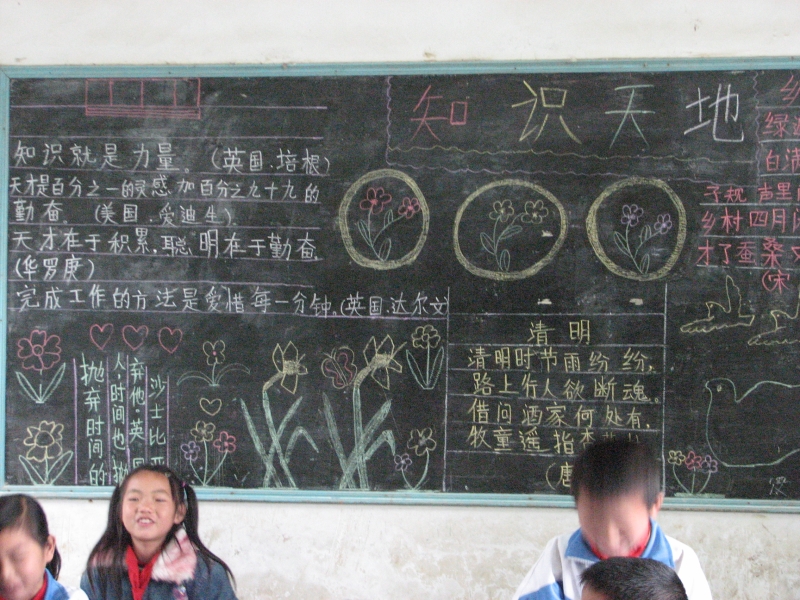 知识天地
知识就是力量。(英国.培根)
天才是百分之一的灵感.加百分之九十九的
勤奋。(美国.爱迪生)
天才在于积累,聪明在于勤奋.
(华罗庚)
完成工作的方法是爱惜每一分钟。(英国.达尔文
抛弃时间的
人,时间也抛
弃他.英国
沙士比亚
清明
清明时节雨纷纷,
路上行人欲断魂。
借问酒家何处有,
牧童遥指杏
(唐
乡
绿遍
白满
子规声里
乡村四月闲
才了蚕桑又
(宋